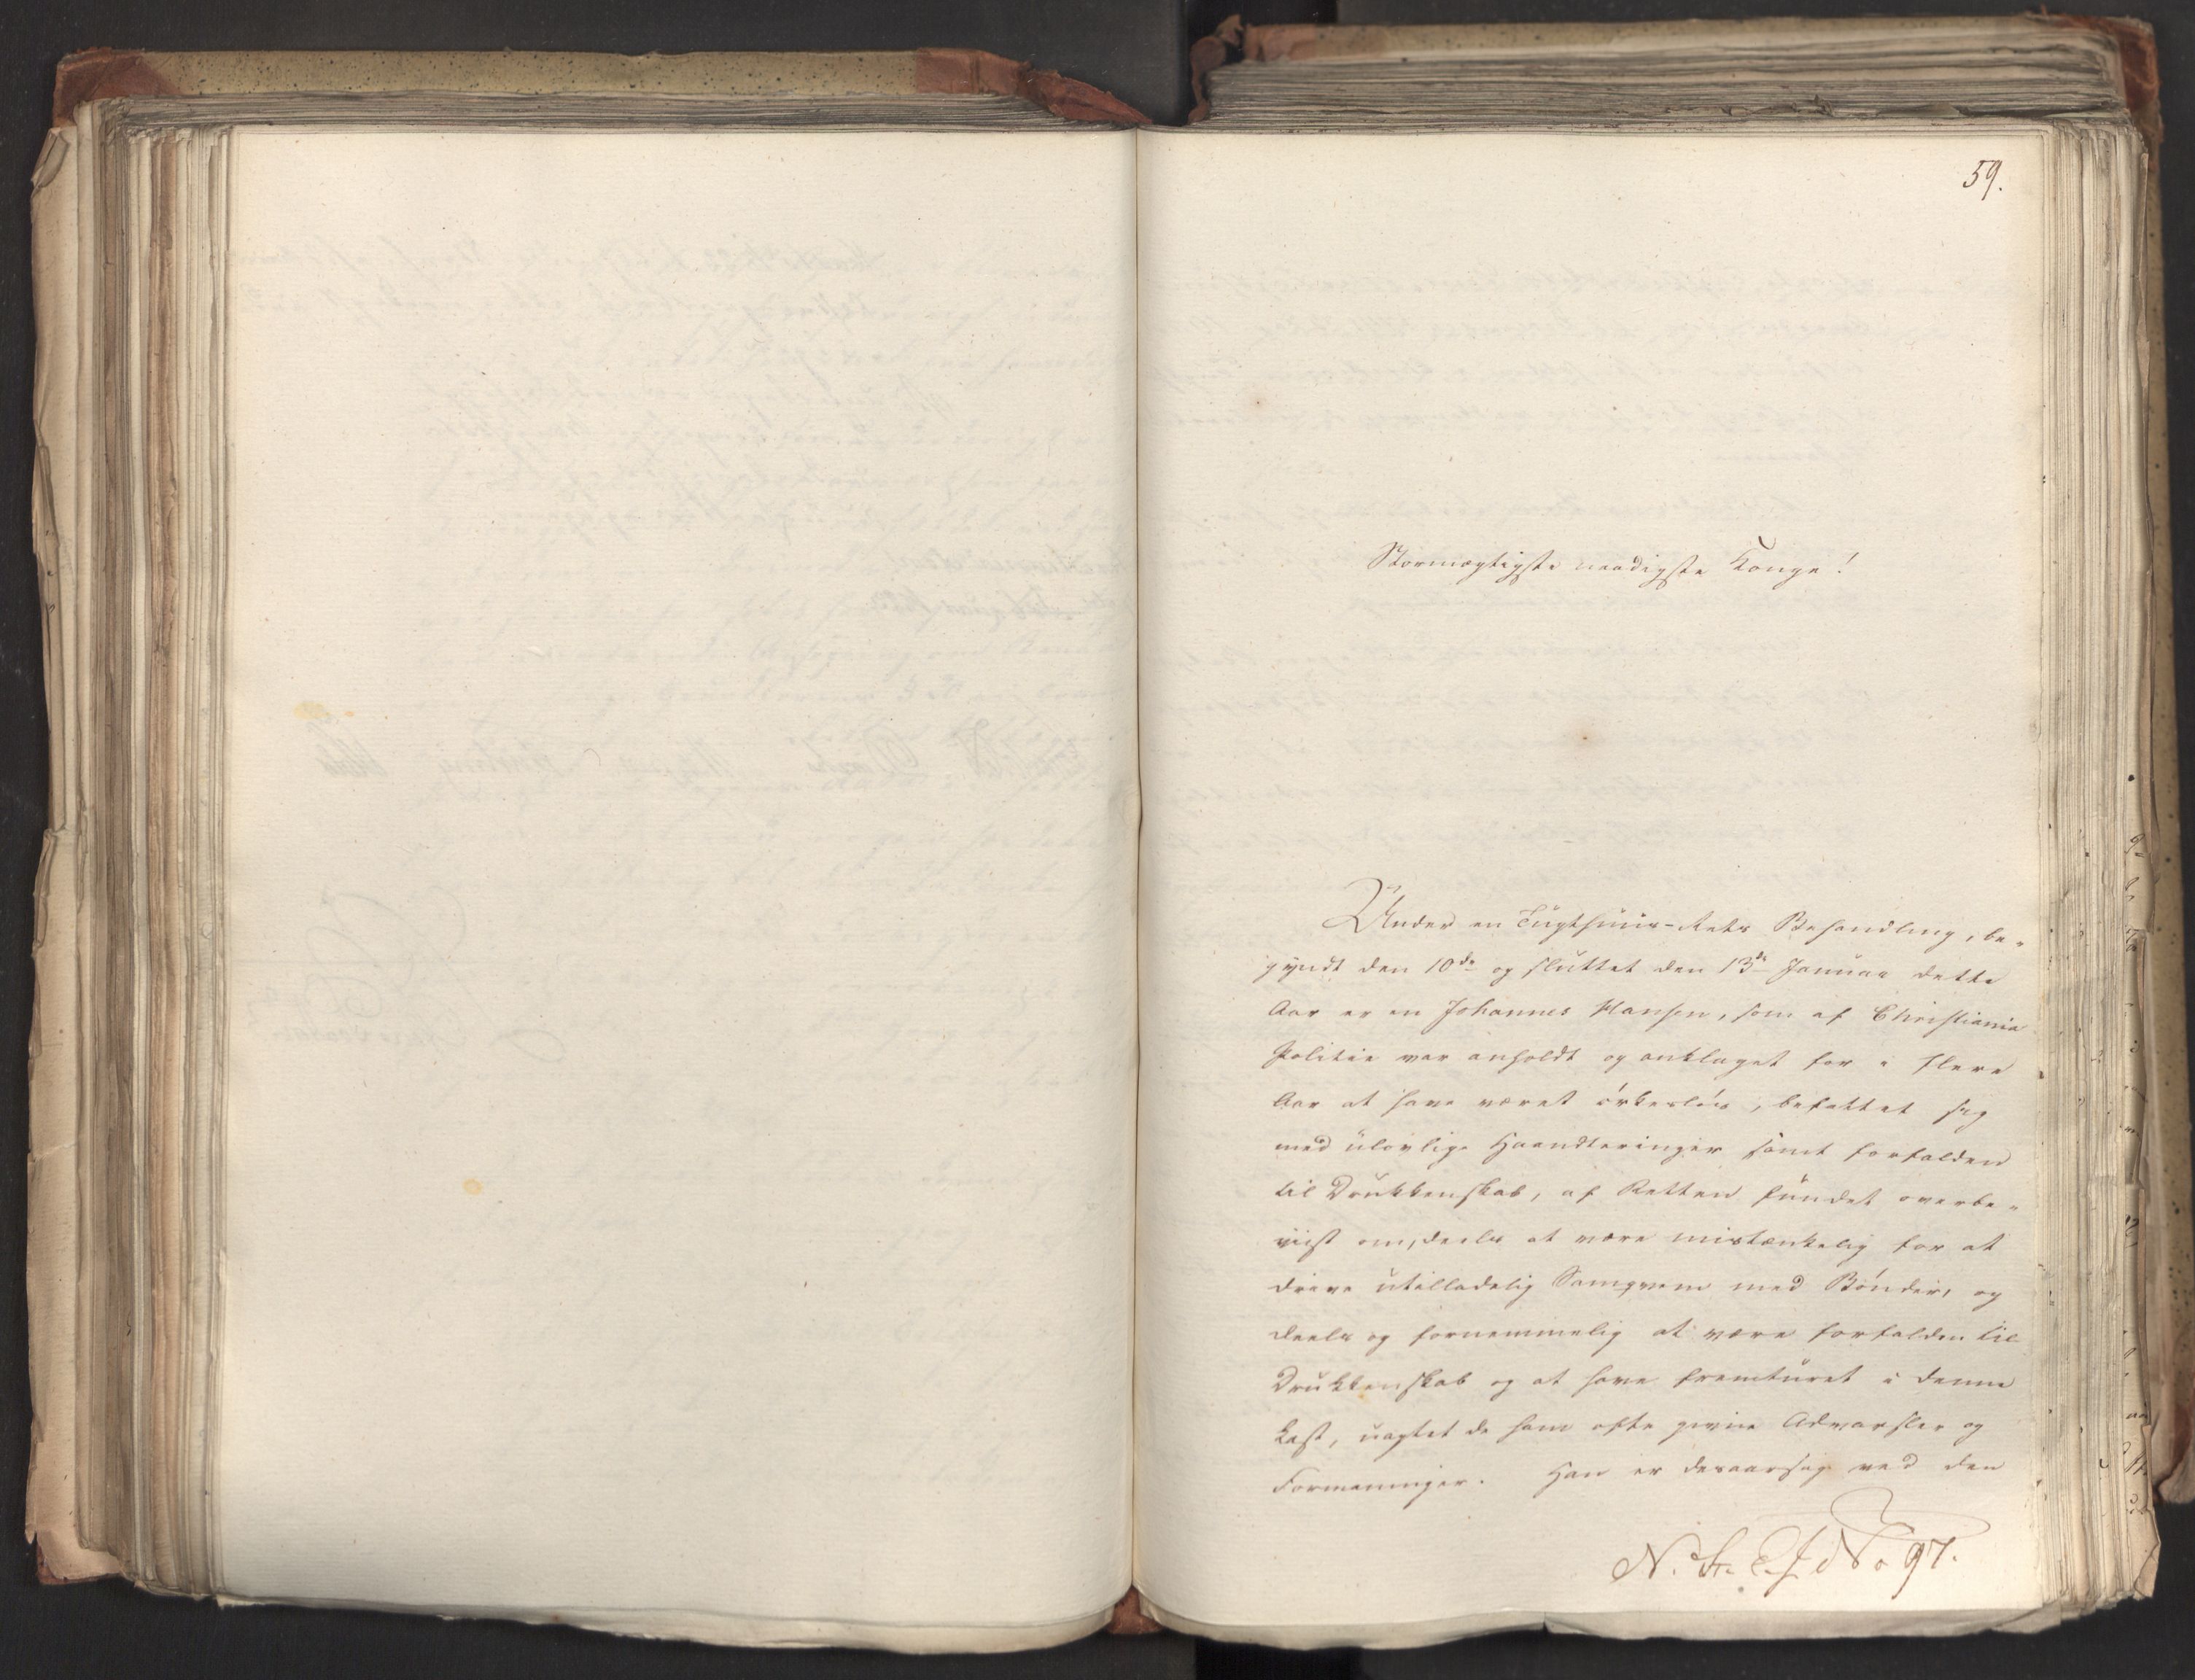 59.
Stormægtigste naadigste Konge!
Under en Tugthuus-Rets Behandling, be-
gyndt den 10de og sluttet den 13de Januar dette
Aar er en Johannes Hansen, som af Christiania
Politie var anholdt og anklaget for i flere
Aar at have været örkeslös, befattet sig
med ulovlige Haandteringer samt forfalden
til Drukkenskab, af Retten fundet overbe-
viist om, deels at være mistænkelig for at
drive utilladelig Samqvem med Bönder, og
deels og fornemmelig at være forfalden til
Drukkenskab og at have fremturet i denne
Last, uagtet de ham ofte givne Advarsler og
Formaninger. Han er desaarsag ved den
No 97.